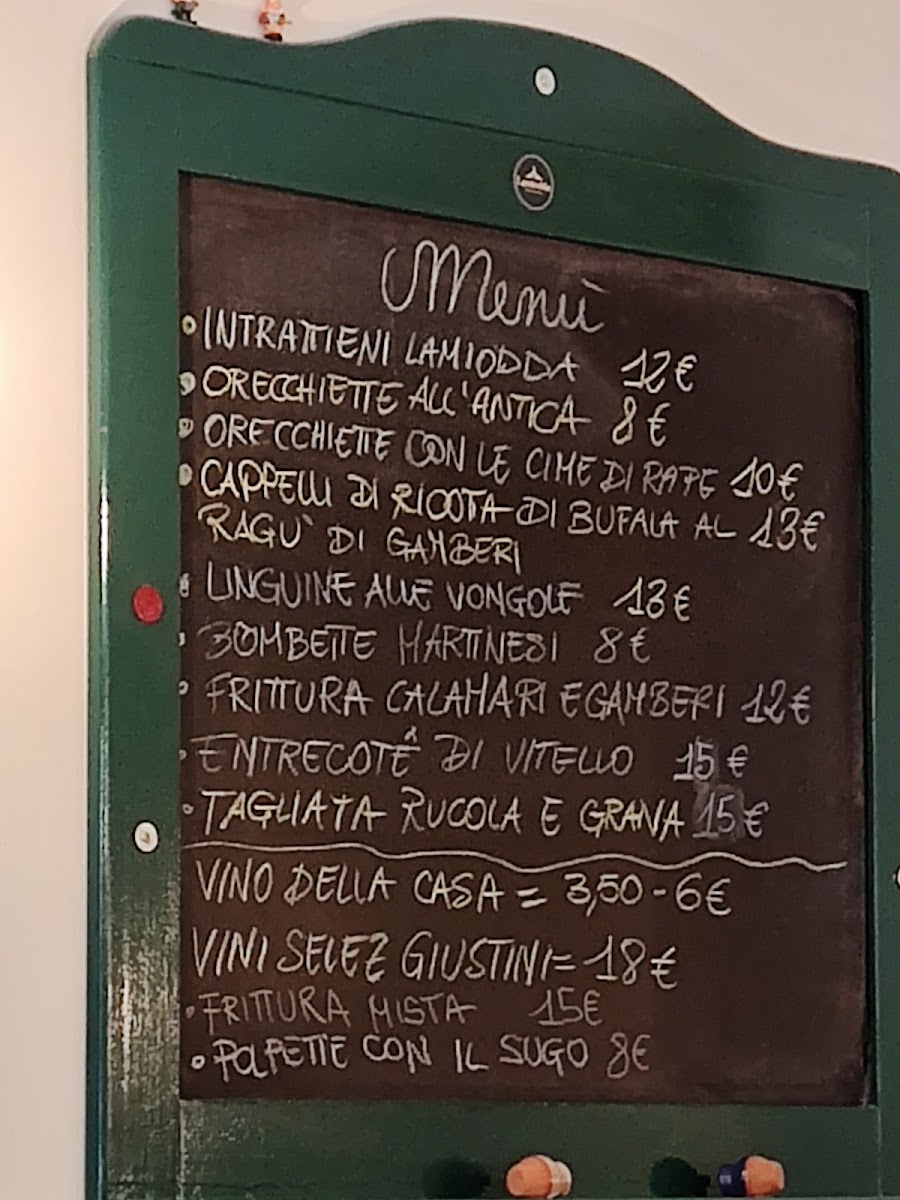 Menù
• INTRATTIENI LAMIODDA 12€
• ORECCHIETTE ALL'ANTICA 8€
• ORECCHIETTE CON LE CIME DI RAPE 10€
• CAPPELLI DI RICOTA DI BUFALA AL 13€
RAGU' DI GAMBERI
• LINGUINE ALLE VONGOLE 13€
• BOMBETTE MARTINESI 8€
• FRITTURA CALAMARI E GAMBERI 12€
• ENTRECOTÊ DI VITELLO 15€
• TAGLIATA RUCOLA E GRANA 15€
VINO DELLA CASA = 3,50 - 6€
VINI SELEZ GIUSTINI = 18€
• FRITTURA MISTA 15€
• POLPETTE CON IL SUGO 8€